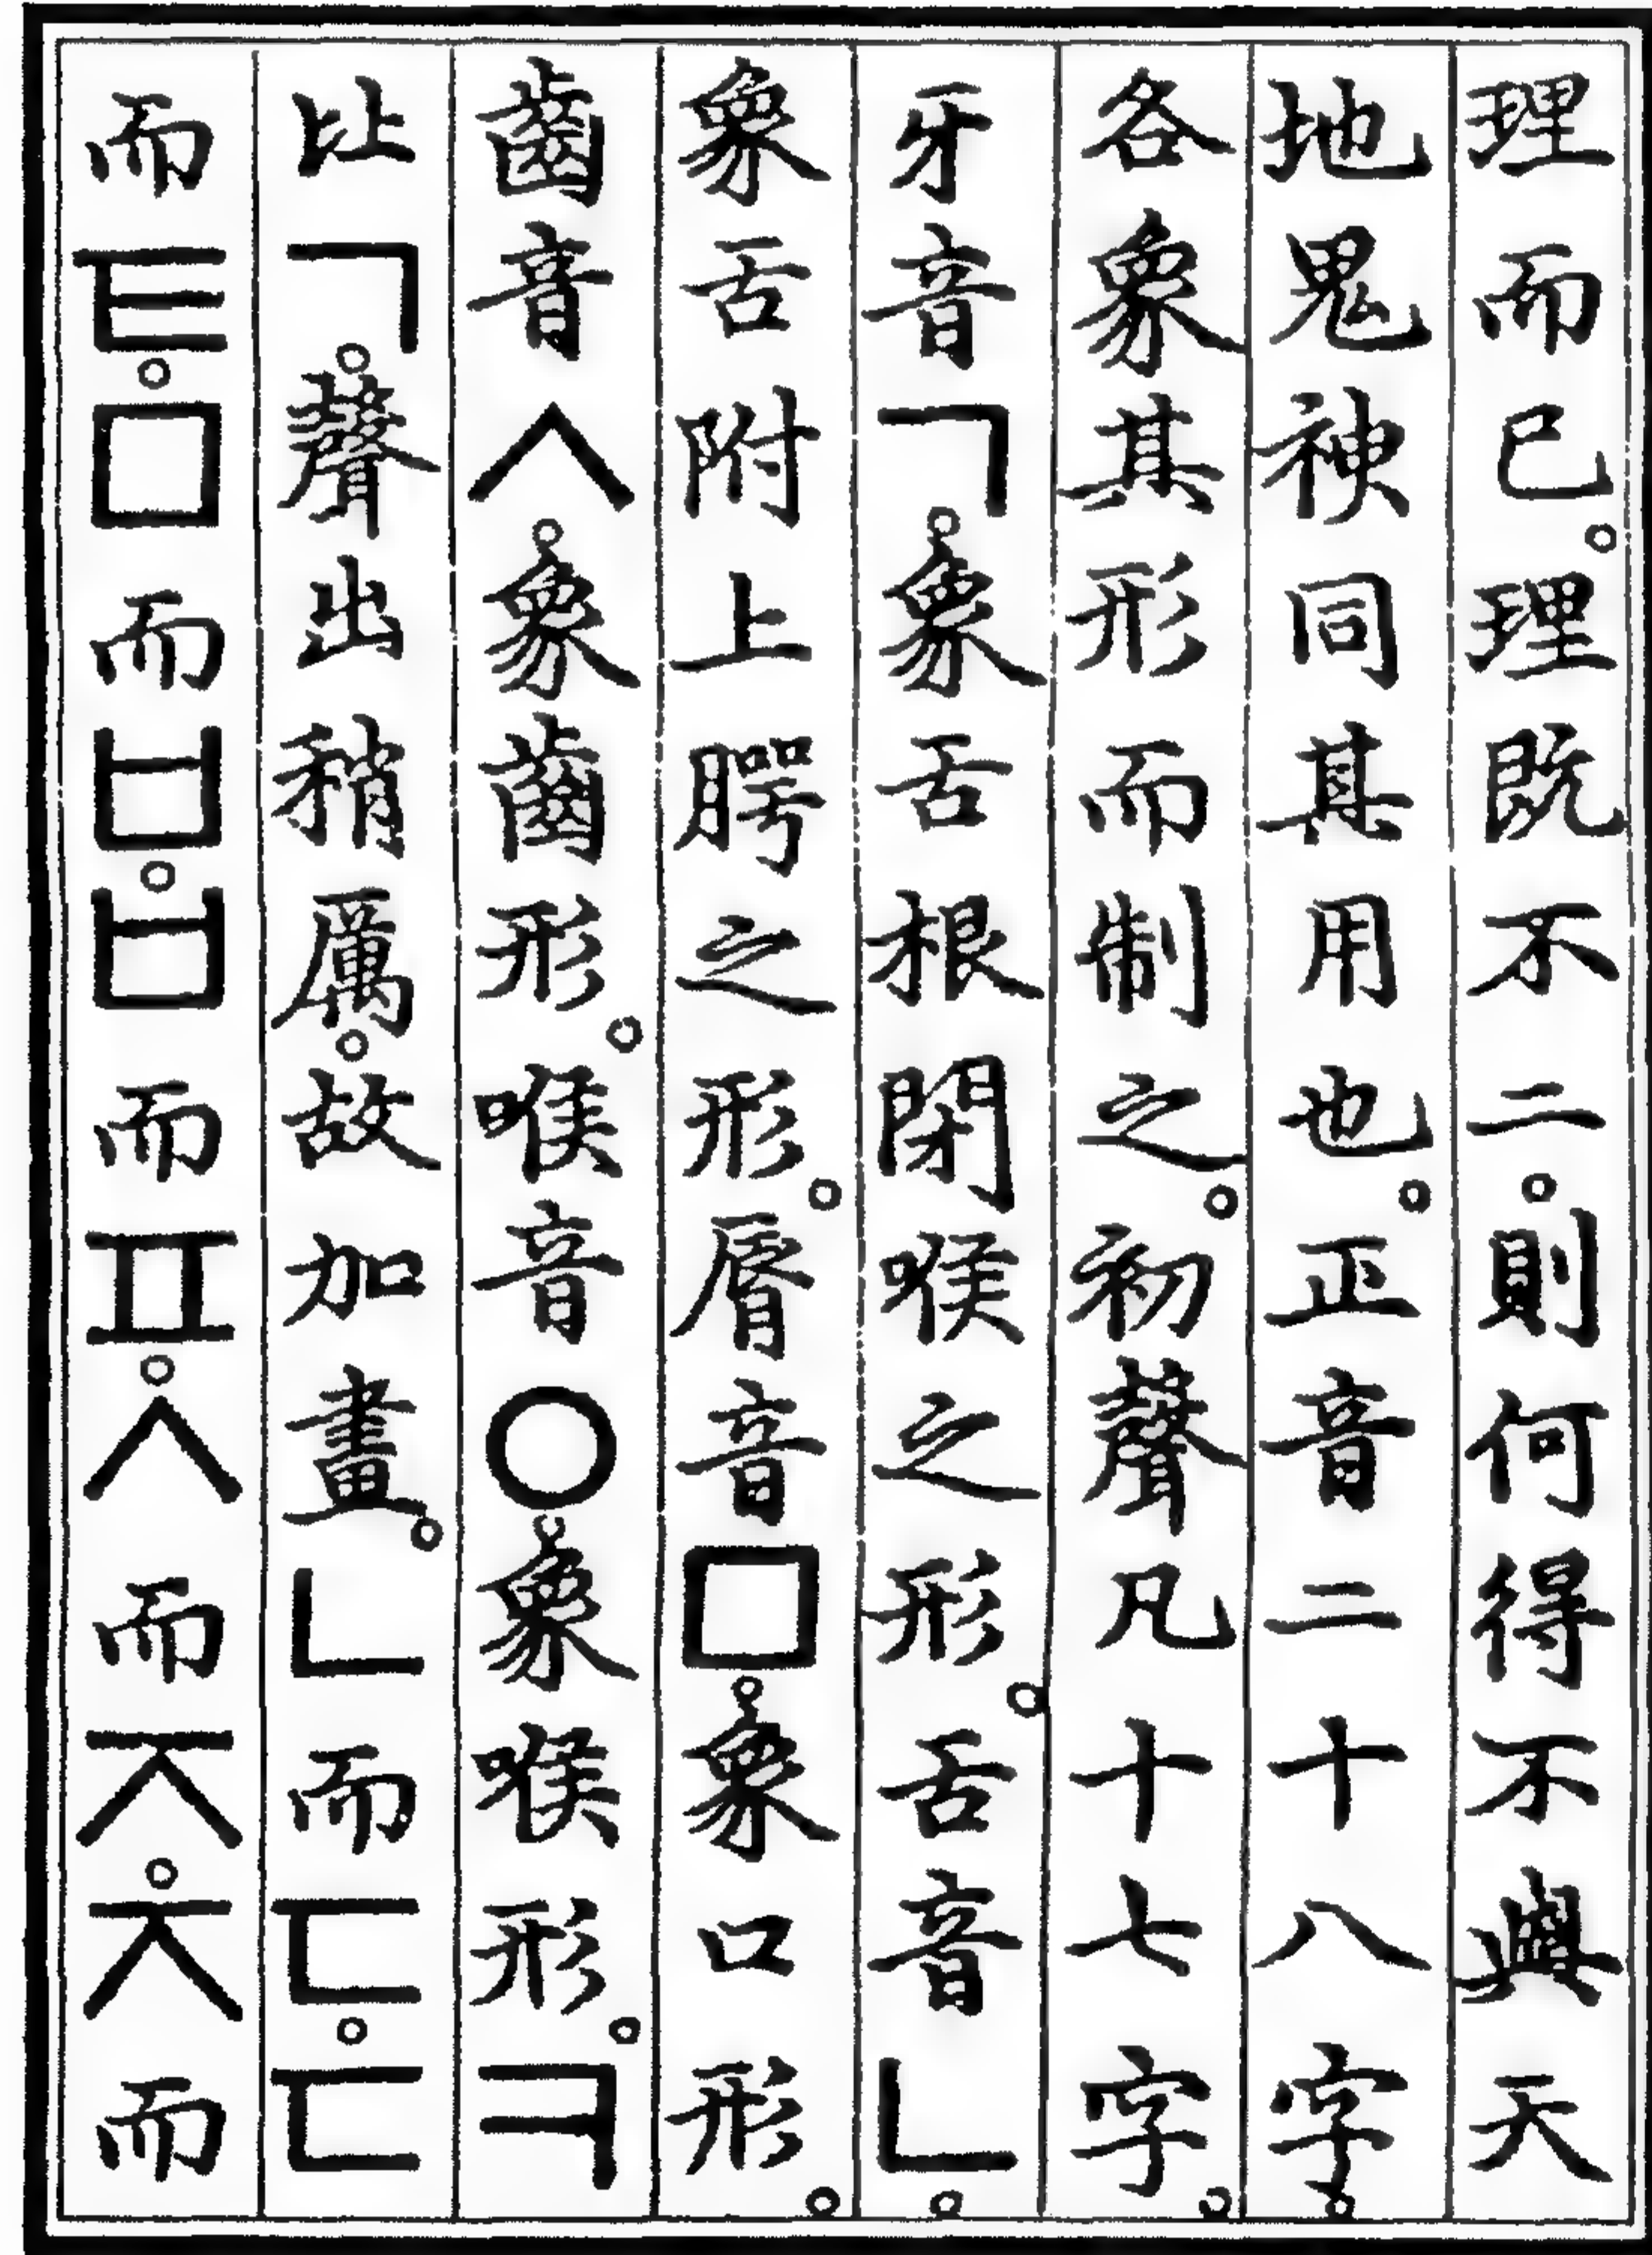 理而已。理既不二。則何得不與天
地鬼神同其用也。正音二十八字。
各象其形而制之。初聲凡十七字。
牙音ㄱ。象舌根閉喉之形。舌音ㄴ。
象舌附上腭之形。脣音ㅁ。象口形。
齒音ㅅ。象齒形。喉音ㅇ。象喉形。ㅋ
比ㄱ。聲出稍厲。故加畫。ㄴ而ㄷ。ㄷ
而ㅌ。ㅁ而ㅂ。ㅂ而ㅍ。ㅅ而ㅈ。ㅊ而